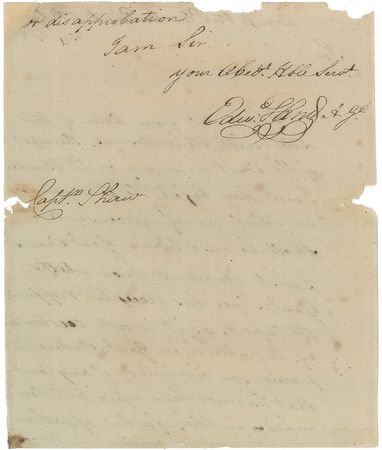 or disapprobation
I am Sir
your Obedt. Hble Servt
Edwd. Hand A Gl.
Captn. Shaw